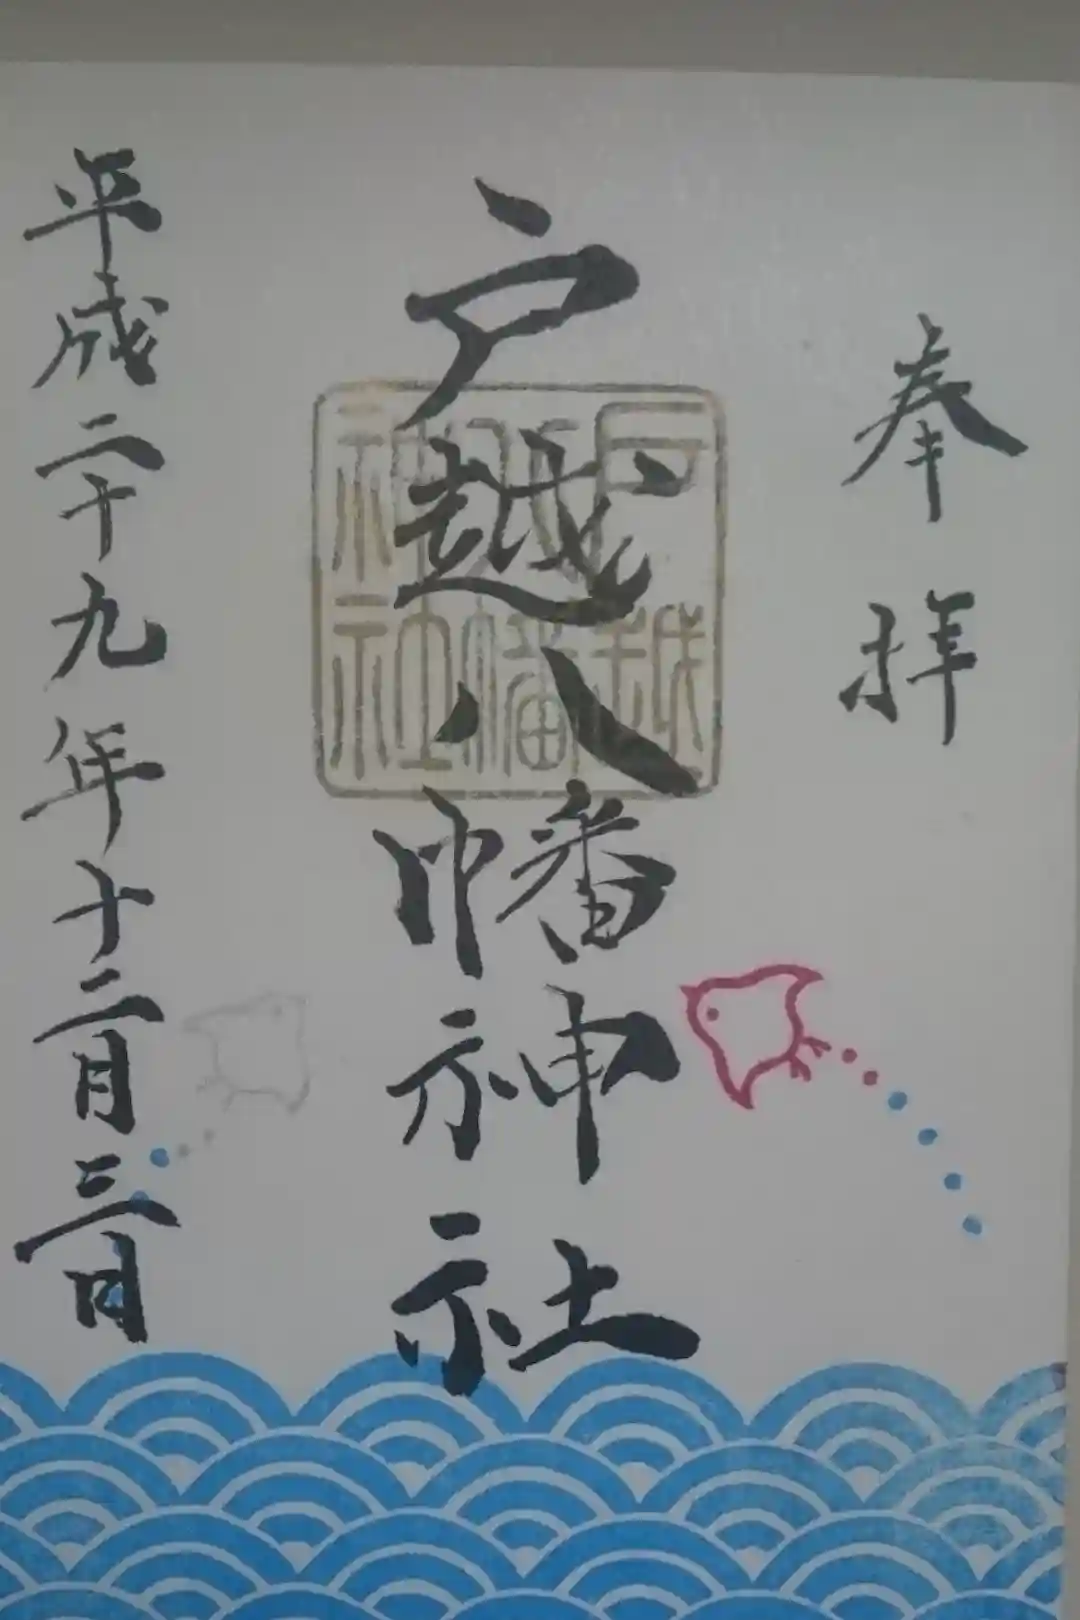 奉拝
戸越八幡神社
戸越
八幡
神社
平成二十九年十二月三日